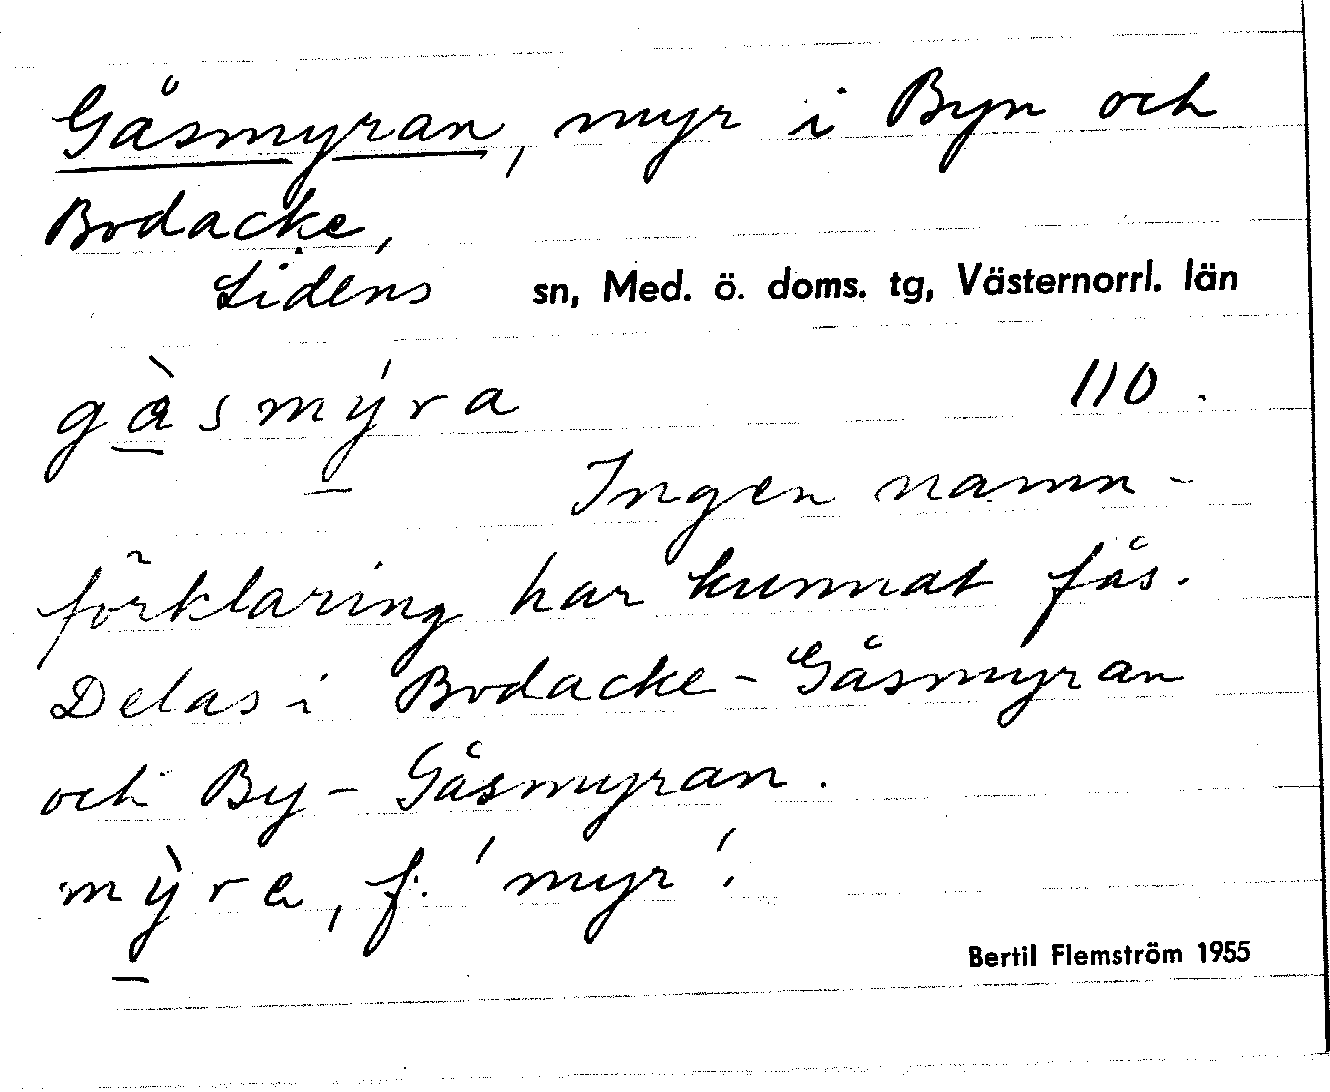 Gåsmyran, myr i Byn och
Bodacke,
Lidens sn, Med. ö. doms. tg, Västernorrl. län
gàsmýra 110.
Ingen namn-
förklaring har kunnat fås.
Delas i Bodacke-Gåsmyran
och By-Gåsmyran.
mỳra, f. 'myr'.
Bertil Flemström 1955